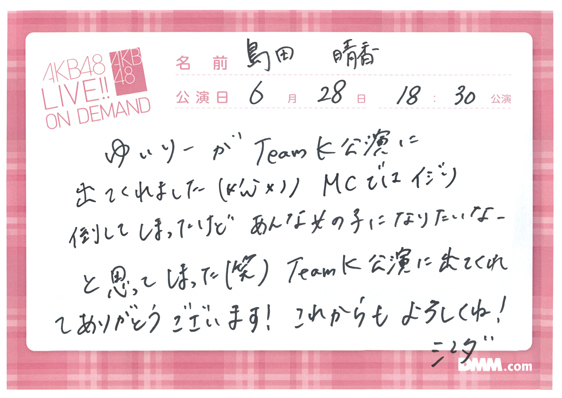 AKB48
LIVE!!
ON DEMAND
AKB
48
名前 島田 晴香
公演日 6月 28日 18:30公演
ゆいりーが Team K 公演に
出てくれました(*´ω`*)) MCではイジり
倒してしまったけど あんな女の子になりたいなー
と思ってしまった(笑) Team K 公演に出てくれ
てありがとうございます! これからも よろしくね!
シマダ
DMM.com